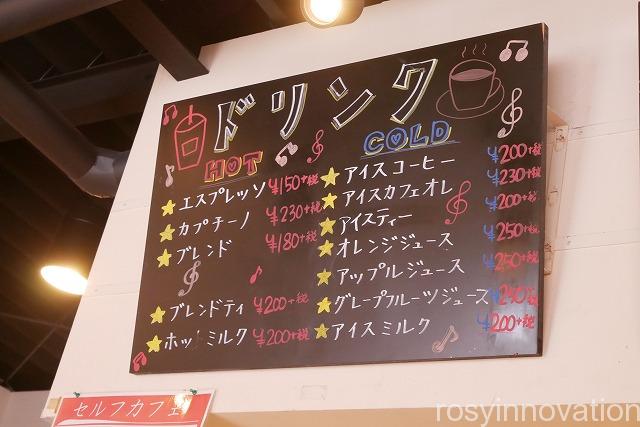 ドリンク
HOT
エスプレッソ ¥150+税
カプチーノ ¥230+税
ブレンド ¥180+税
ブレンドティ ¥200+税
ホットミルク ¥200+税
COLD
アイスコーヒー ¥200+税
アイスカフェオレ ¥230+税
アイスティー ¥200+税
オレンジジュース ¥250+税
アップルジュース ¥250+税
グレープフルーツジュース ¥240+税
アイスミルク ¥200+税
セルフカフェ
rosyinnovation